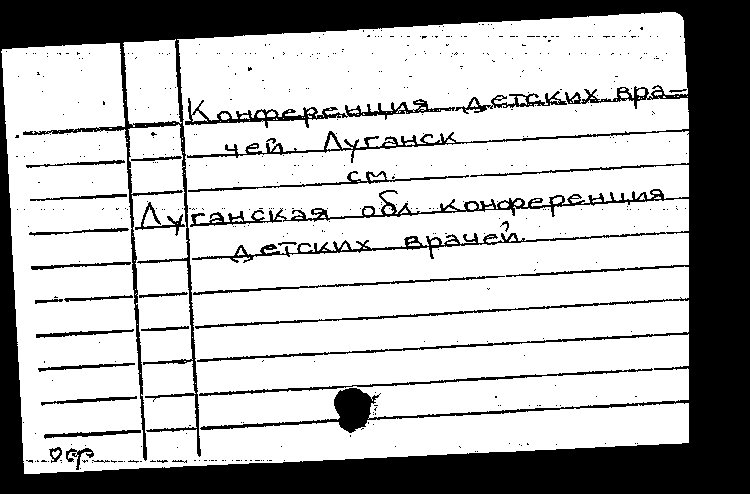 Конференция детских вра=
чей. Луганск
см.
Луганская обл. конференция
детских врачей.